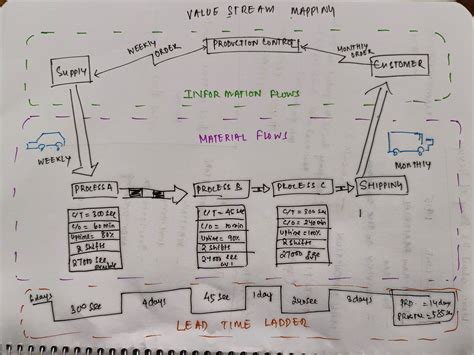 VALUE STREAM MAPPING
WEEKLY ORDER
PRODUCTION CONTROL
MONTHLY ORDER
SUPPLY
CUSTOMER
INFORMATION FLOWS
MATERIAL FLOWS
WEEKLY
MONTHLY
PROCESS A
PROCESS B
PROCESS C
SHIPPING
C/T = 300 sec
C/O = 60 min
Uptime = 80%
2 Shifts
27000 sec
C/T = 45 sec
C/O = 10 min
Uptime = 90%
2 Shifts
27000 sec
C/T = 300 sec
C/O = 240 min
Uptime = 100%
2 Shifts
27000 sec
days
300 sec
4 days
45 sec
1 day
240 sec
3 days
= 14 day
= 585 sec
LEAD TIME LADDER